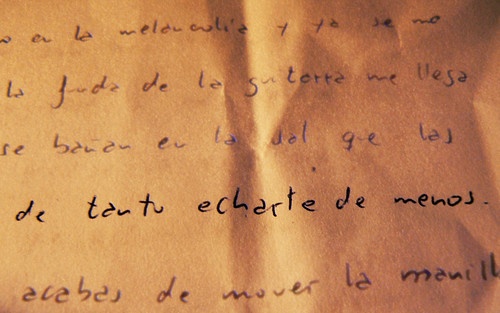 en la melancolía y ya se me
la funda de la guitarra me llega
se bañan en la sal que las
de tanto echarte de menos.
acabas de mover la manill